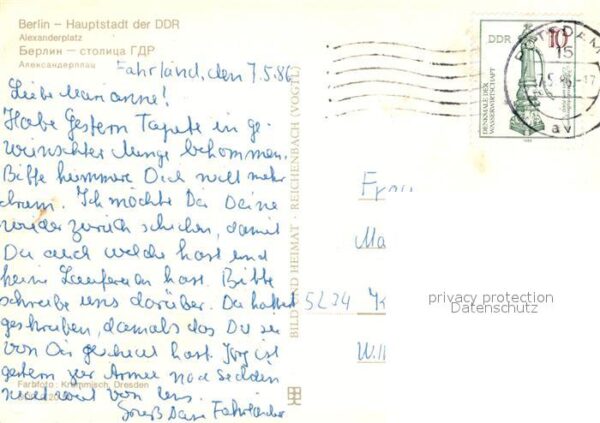 Berlin – Hauptstadt der DDR
Alexanderplatz
Берлин – столица ГДР
Александерплац
Fahrland, den 7.5.86
Liebe Marianne!
Habe Gestern Tapete in ge
wünschter Menge bekommen.
Bitte kümmere Dich nicht mehr
drum. Ich möchte Dir Deine
wieder zurück schicken, damit
Du auch welche hast und
keine Lauferei hast. Bitte
schreibe uns darüber. Du hattest
geschrieben, damals das Du sie
von Dir gehabt hast. Jörg ist
gestern zur Armee nach
nicht weit von uns.
Gruß Deine Fahrländer
Farbfoto: Krammisch, Dresden
BILD UND HEIMAT · REICHENBACH (VOGTL)
DDR 10
DENKMALE DER
WASSERWIRTSCHAFT
POTSDAM
15
7.5.86-17
av
Frau
Ma
5234 K
Wil
privacy protection
Datenschutz